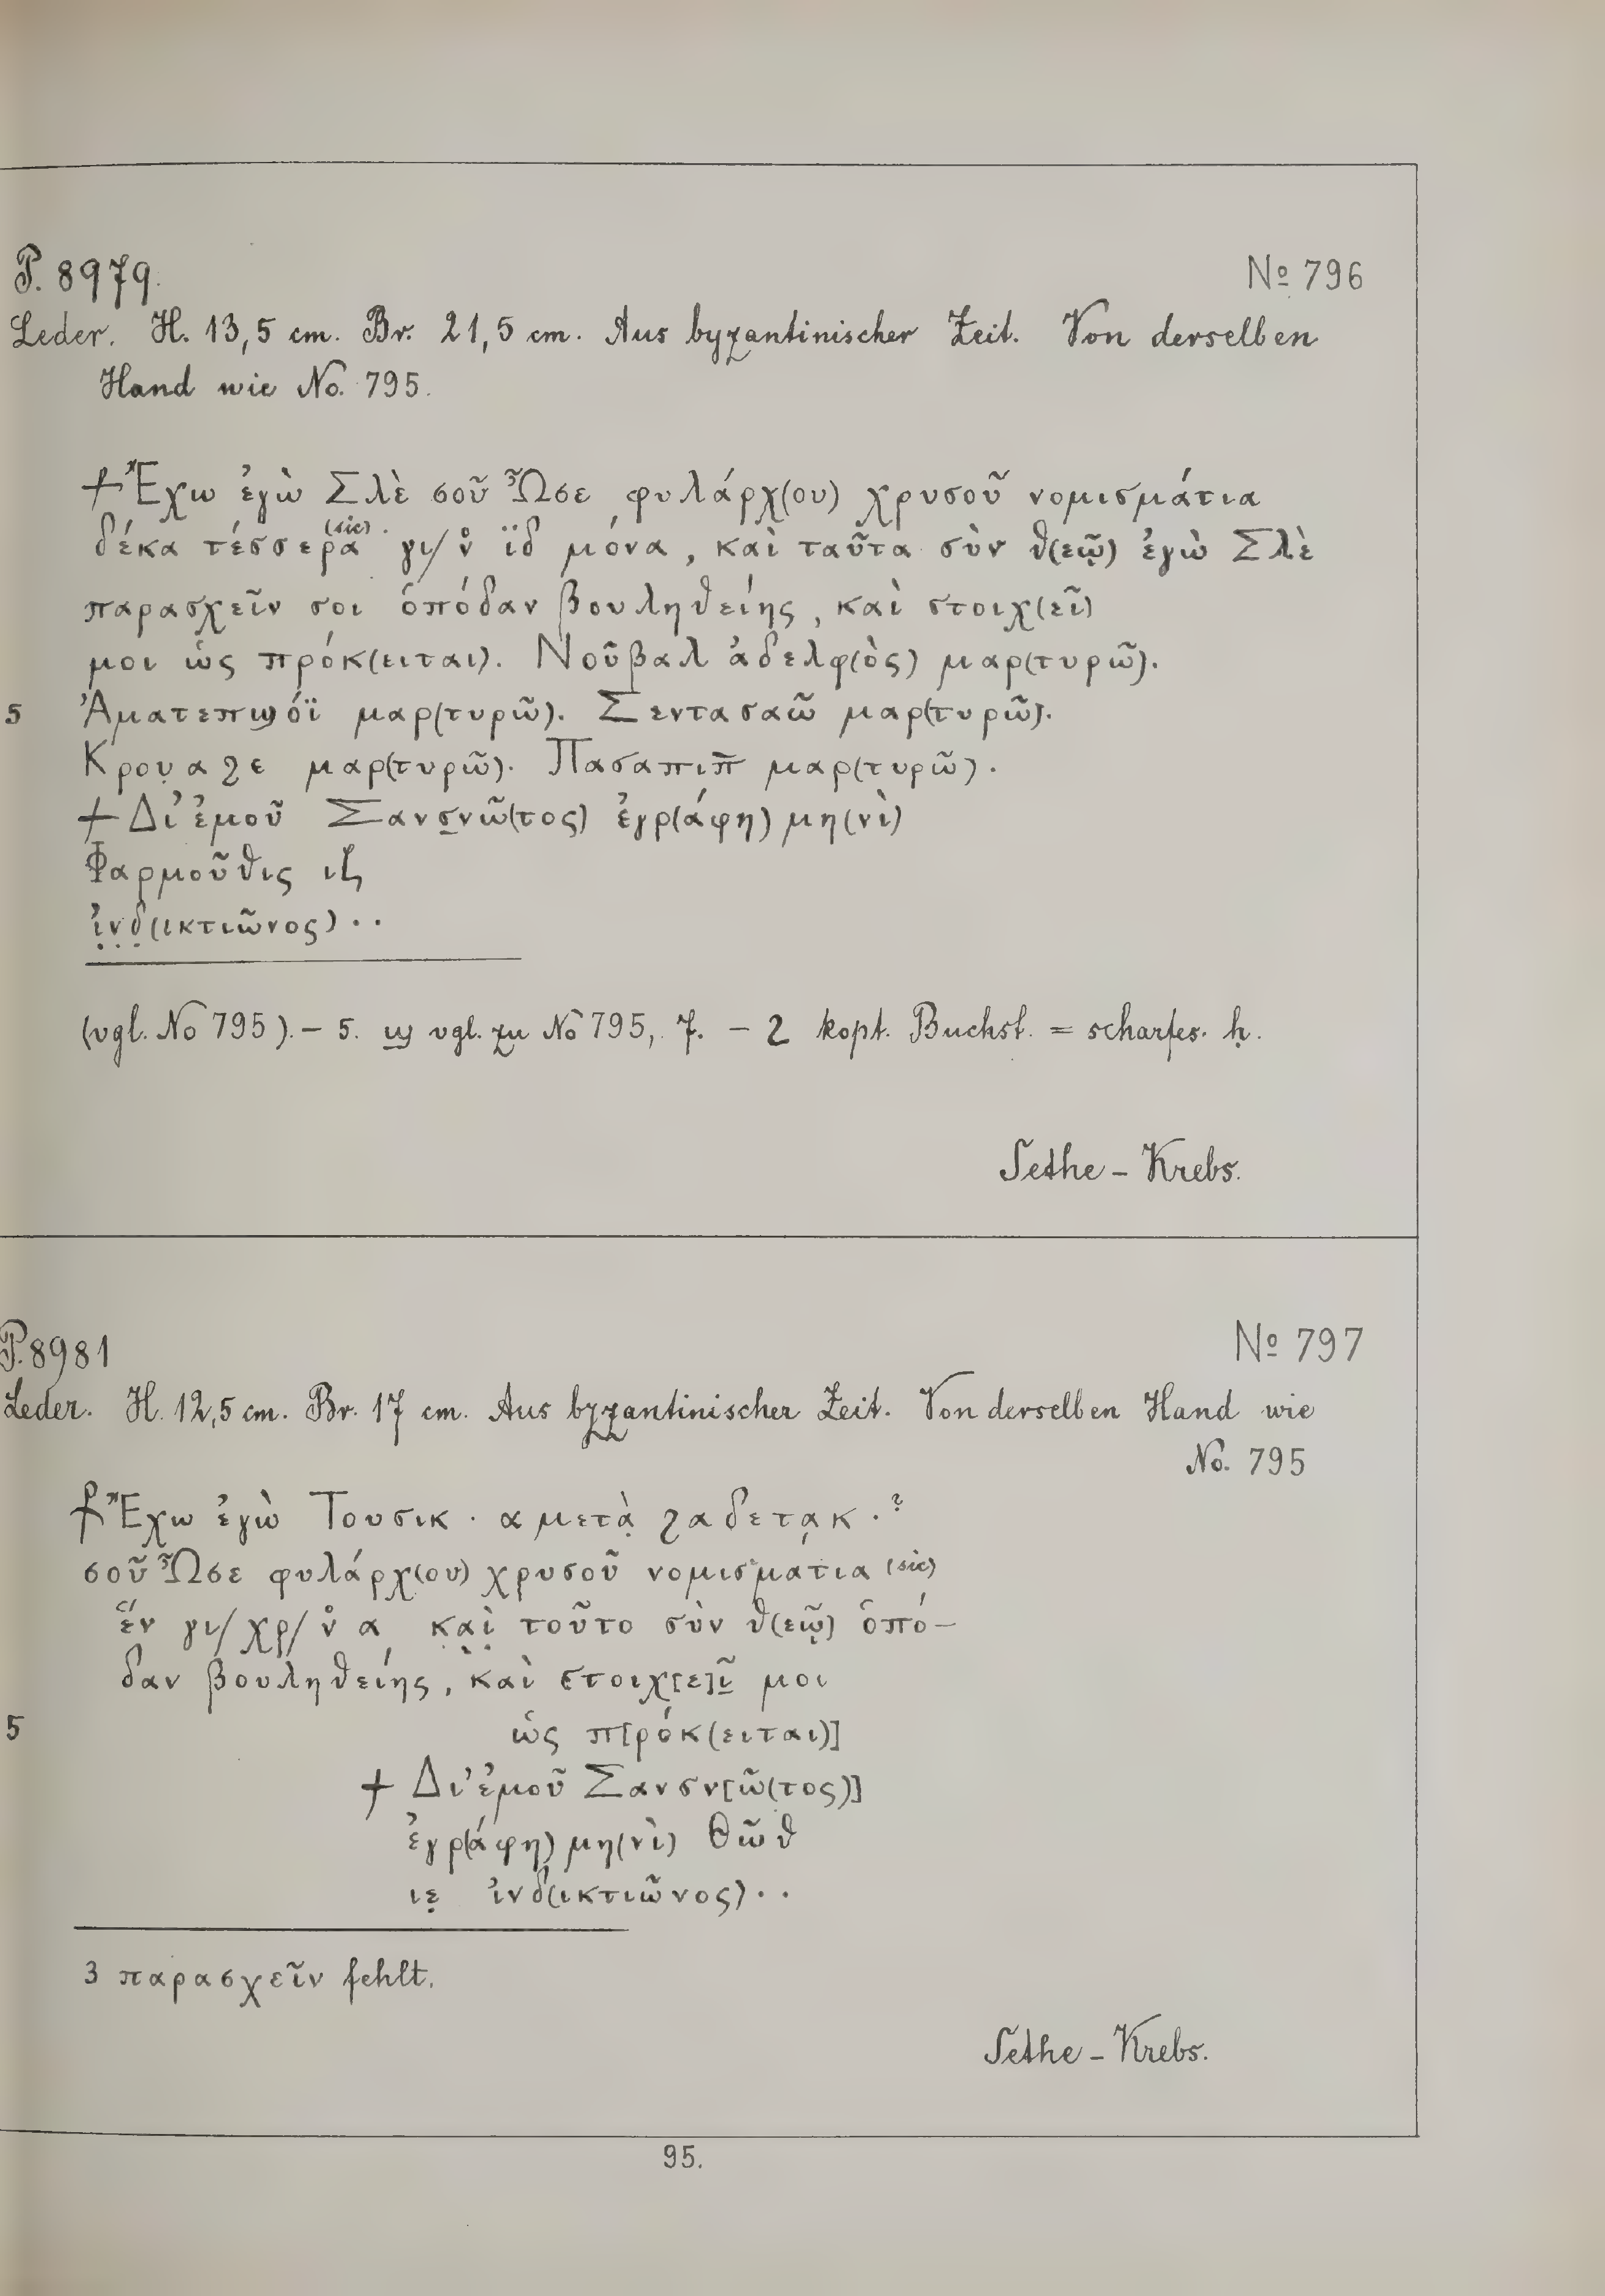 P. 8979. № 796
Leder. H. 13,5 cm. Br. 21,5 cm. Aus byzantinischer Zeit. Von derselben
Hand wie No. 795.
⳨ Ἔχω ἐγὼ Σλὲ σοῦ Ὦσε φυλάρχ(ου) χρυσοῦ νομισμάτια
δέκα τέσσερα (sic) γι/ ν̊ ϊδ μόνα, καὶ ταῦτα σὺν θ(εῷ) ἐγὼ Σλὲ
παρασχεῖν σοι ὁπόδαν βουληθείης, καὶ στοιχ(εῖ)
μοι ὡς πρόκ(ειται). Νοῦβαλ ἀδελφ(ὸς) μαρ(τυρῶ).
5 Ἀματεπϣόϊ μαρ(τυρῶ). Σεντασαῶ μαρ(τυρῶ).
Κρου̣αϩε μαρ(τυρῶ). Πασαπιπ̅ μαρ(τυρῶ).
⳨ Δι’ ἐμοῦ Σανσ̲νῶ(τος) ἐγρ(άφη) μη(νὶ)
Φαρμοῦθις ιζ
ἰ̣ν̣δ̣(ικτιῶνος) . .
(vgl. No 795). – 5. ϣ vgl. zu No 795, 7. – ϩ kopt. Buchst. = scharfes ḥ.
Sethe – Krebs.
P. 8981 № 797
Leder. H. 12,5 cm. Br. 17 cm. Aus byzantinischer Zeit. Von derselben Hand wie
No. 795
⳨ Ἔχω ἐγὼ Τουσικ . α μετὰ̣ ϩαδετα̣κ . ?
σοῦ Ὦσε φυλάρχ(ου) χρυσοῦ νομισμάτια (sic)
ἕν γι/ χρ/ ν̊ α κα̣ὶ̣ τοῦτο σὺν θ(εῷ) ὁπό-
δαν βουληθείης, καὶ στοιχ[ε]ῖ̲ μοι
5 ὡς π[ρόκ(ειται)]
⳨ Δι’ ἐμοῦ Σανσν[ῶ(τος)]
ἐγρ(άφη) μη(νὶ) Θῶθ
ιε̣ ἰνδ(ικτιῶνος) . .
3 παρασχεῖν fehlt.
Sethe – Krebs.
95.